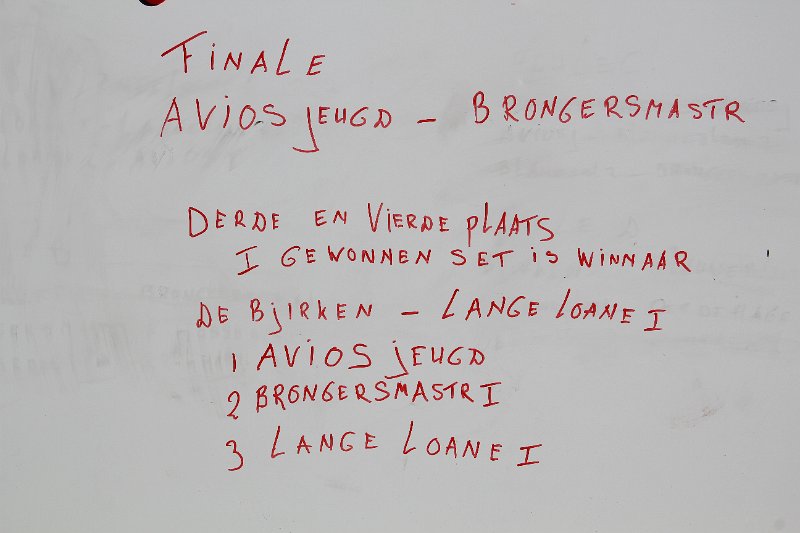 FINALE
AVIOS jEUGD – BRONGERSMASTR
DERDE EN VIERDE PLAATS
I GEWONNEN SET iS WINNAAR
DE BjIRKEN – LANGE LOANE I
1 AVIOS jEUGD
2 BRONGERSMASTR I
3 LANGE LOANE I